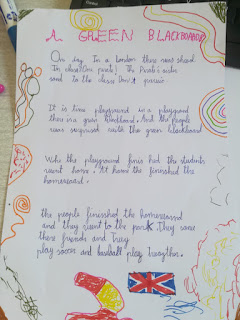 A GREEN BLACKBOARD
One day In a london there was shool
In class One
and to the class One
It is time playground in a playground
there is a green blackboard. And the people
was surprised with the green blackboard
While the playground finished the students
went home. At home the finished the
homeword.
the people finished the homeword
and they went to the park They some
there friends and they
play soccer and baseball play together.